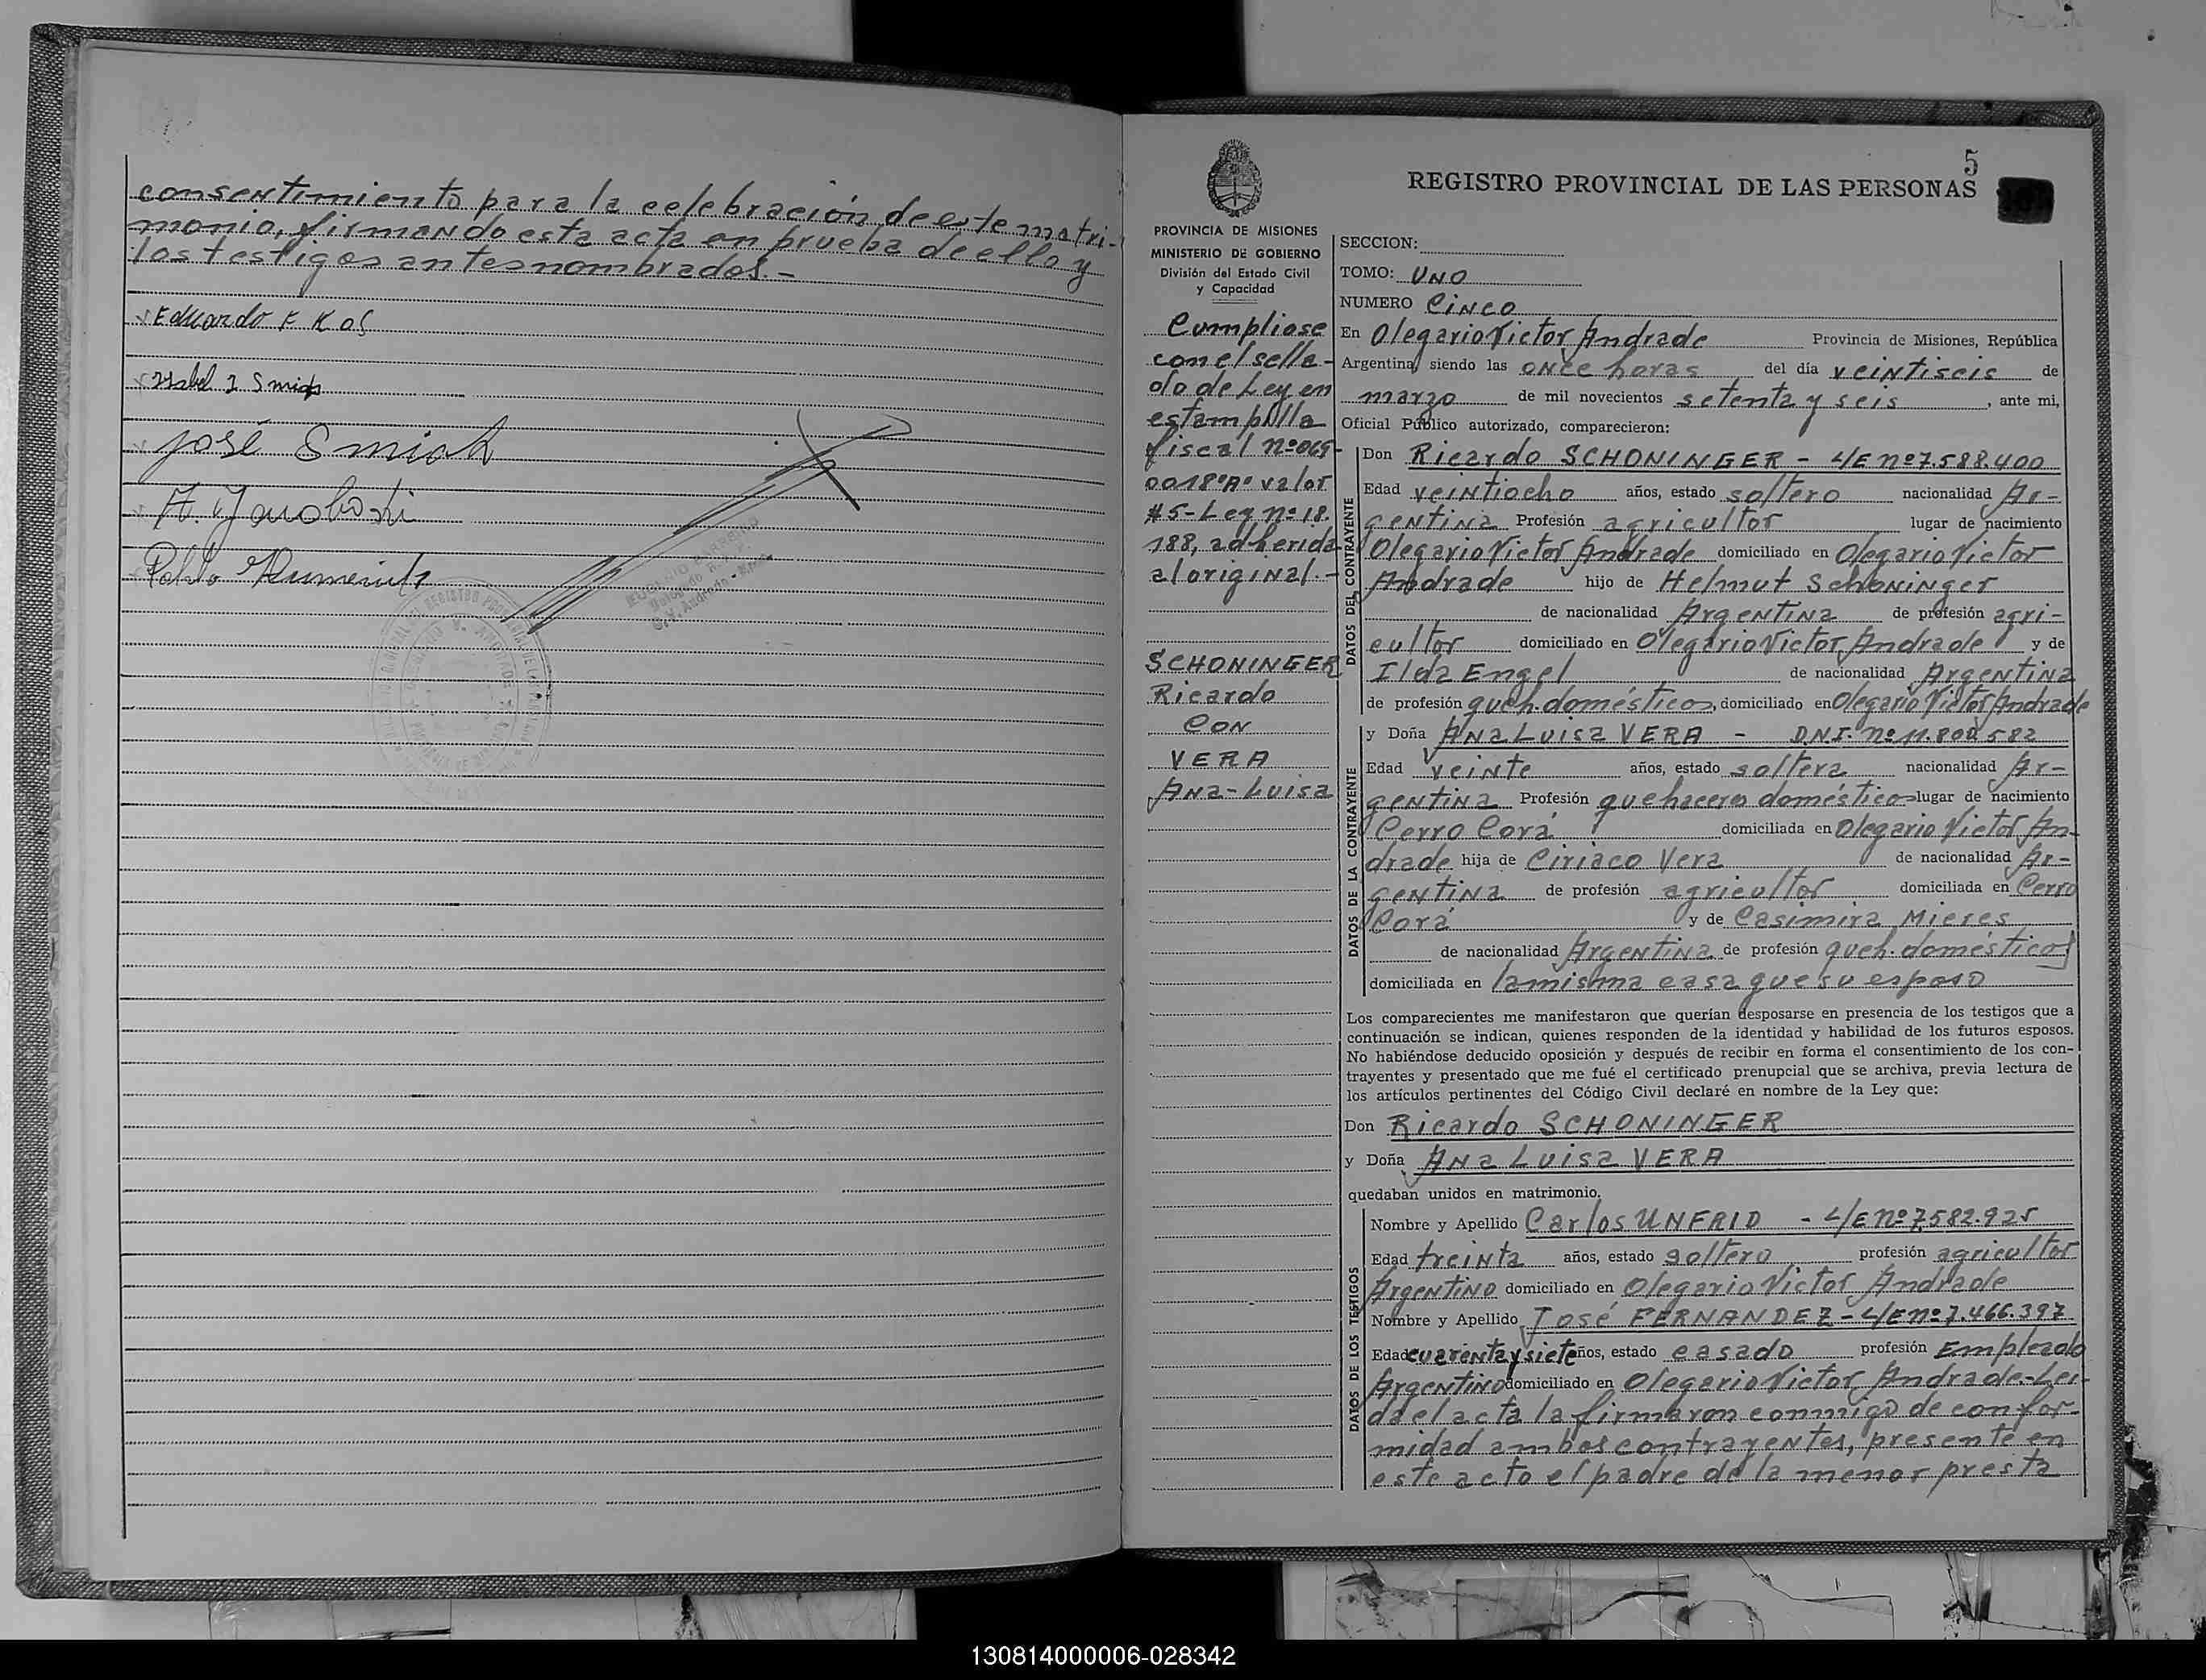 consentimiento para la celebración de este matri-
monio, firmando esta acta en prueba de ello y
los testigos antes nombrados.-
Eduardo F Kos
Isabel I Smiak
José Smiak
Pablo
5
REGISTRO PROVINCIAL DE LAS PERSONAS
PROVINCIA DE MISIONES
MINISTERIO DE GOBIERNO
División del Estado Civil
y Capacidad
Cumpliose
con el sella-
do de Ley en
estampilla
fiscal nº 069-
0018 "A" valor
$5- Ley nº 18.
188, adherida
al original.-
SCHONINGER
Ricardo
CON
VERA
Ana-Luisa
SECCION:
TOMO: UNO
NUMERO CINCO
En Olegario Victor Andrade Provincia de Misiones, República
Argentina, siendo las once horas del día veintiseis de
marzo de mil novecientos setenta y seis, ante mi,
Oficial Público autorizado, comparecieron:
DATOS DEL CONTRAYENTE
Don Ricardo SCHONINGER - L/E nº 7.588.400
Edad veintiocho años, estado soltero nacionalidad Ar-
gentina Profesión agricultor lugar de nacimiento
Olegario Victor Andrade domiciliado en Olegario Victor
Andrade hijo de Helmut Schoninger
de nacionalidad Argentina de profesión agri-
cultor domiciliado en Olegario Victor Andrade y de
Ilda Engel de nacionalidad Argentina
de profesión queh. domésticos, domiciliado en Olegario Victor Andrade
DATOS DE LA CONTRAYENTE
y Doña Ana Luisa VERA - D.N.I. nº 11.800.582
Edad veinte años, estado soltera nacionalidad Ar-
gentina Profesión quehaceres domésticos lugar de nacimiento
Cerro Corá domiciliada en Olegario Victor An-
drade hija de Ciriaco Vera de nacionalidad Ar-
gentina de profesión agricultor domiciliada en Cerro
Corá y de Casimira Mieres
de nacionalidad Argentina de profesión queh. domésticos
domiciliada en la misma casa que su esposo
Los comparecientes me manifestaron que querían desposarse en presencia de los testigos que a
continuación se indican, quienes responden de la identidad y habilidad de los futuros esposos.
No habiéndose deducido oposición y después de recibir en forma el consentimiento de los con-
trayentes y presentado que me fué el certificado prenupcial que se archiva, previa lectura de
los artículos pertinentes del Código Civil declaré en nombre de la Ley que:
Don Ricardo SCHONINGER
y Doña Ana Luisa VERA
quedaban unidos en matrimonio.
DATOS DE LOS TESTIGOS
Nombre y Apellido Carlos UNFRID - L/E nº 7.582.925
Edad treinta años, estado soltero profesión agricultor
Argentino domiciliado en Olegario Victor Andrade
Nombre y Apellido José FERNANDEZ - L/E nº 7.466.397
Edad cuarenta y siete años, estado casado profesión Empleado
Argentino domiciliado en Olegario Victor Andrade.-Lei-
da el acta la firmaron conmigo de confor-
midad ambos contrayentes, presente en
este acto el padre de la menor presta
130814000006-028342